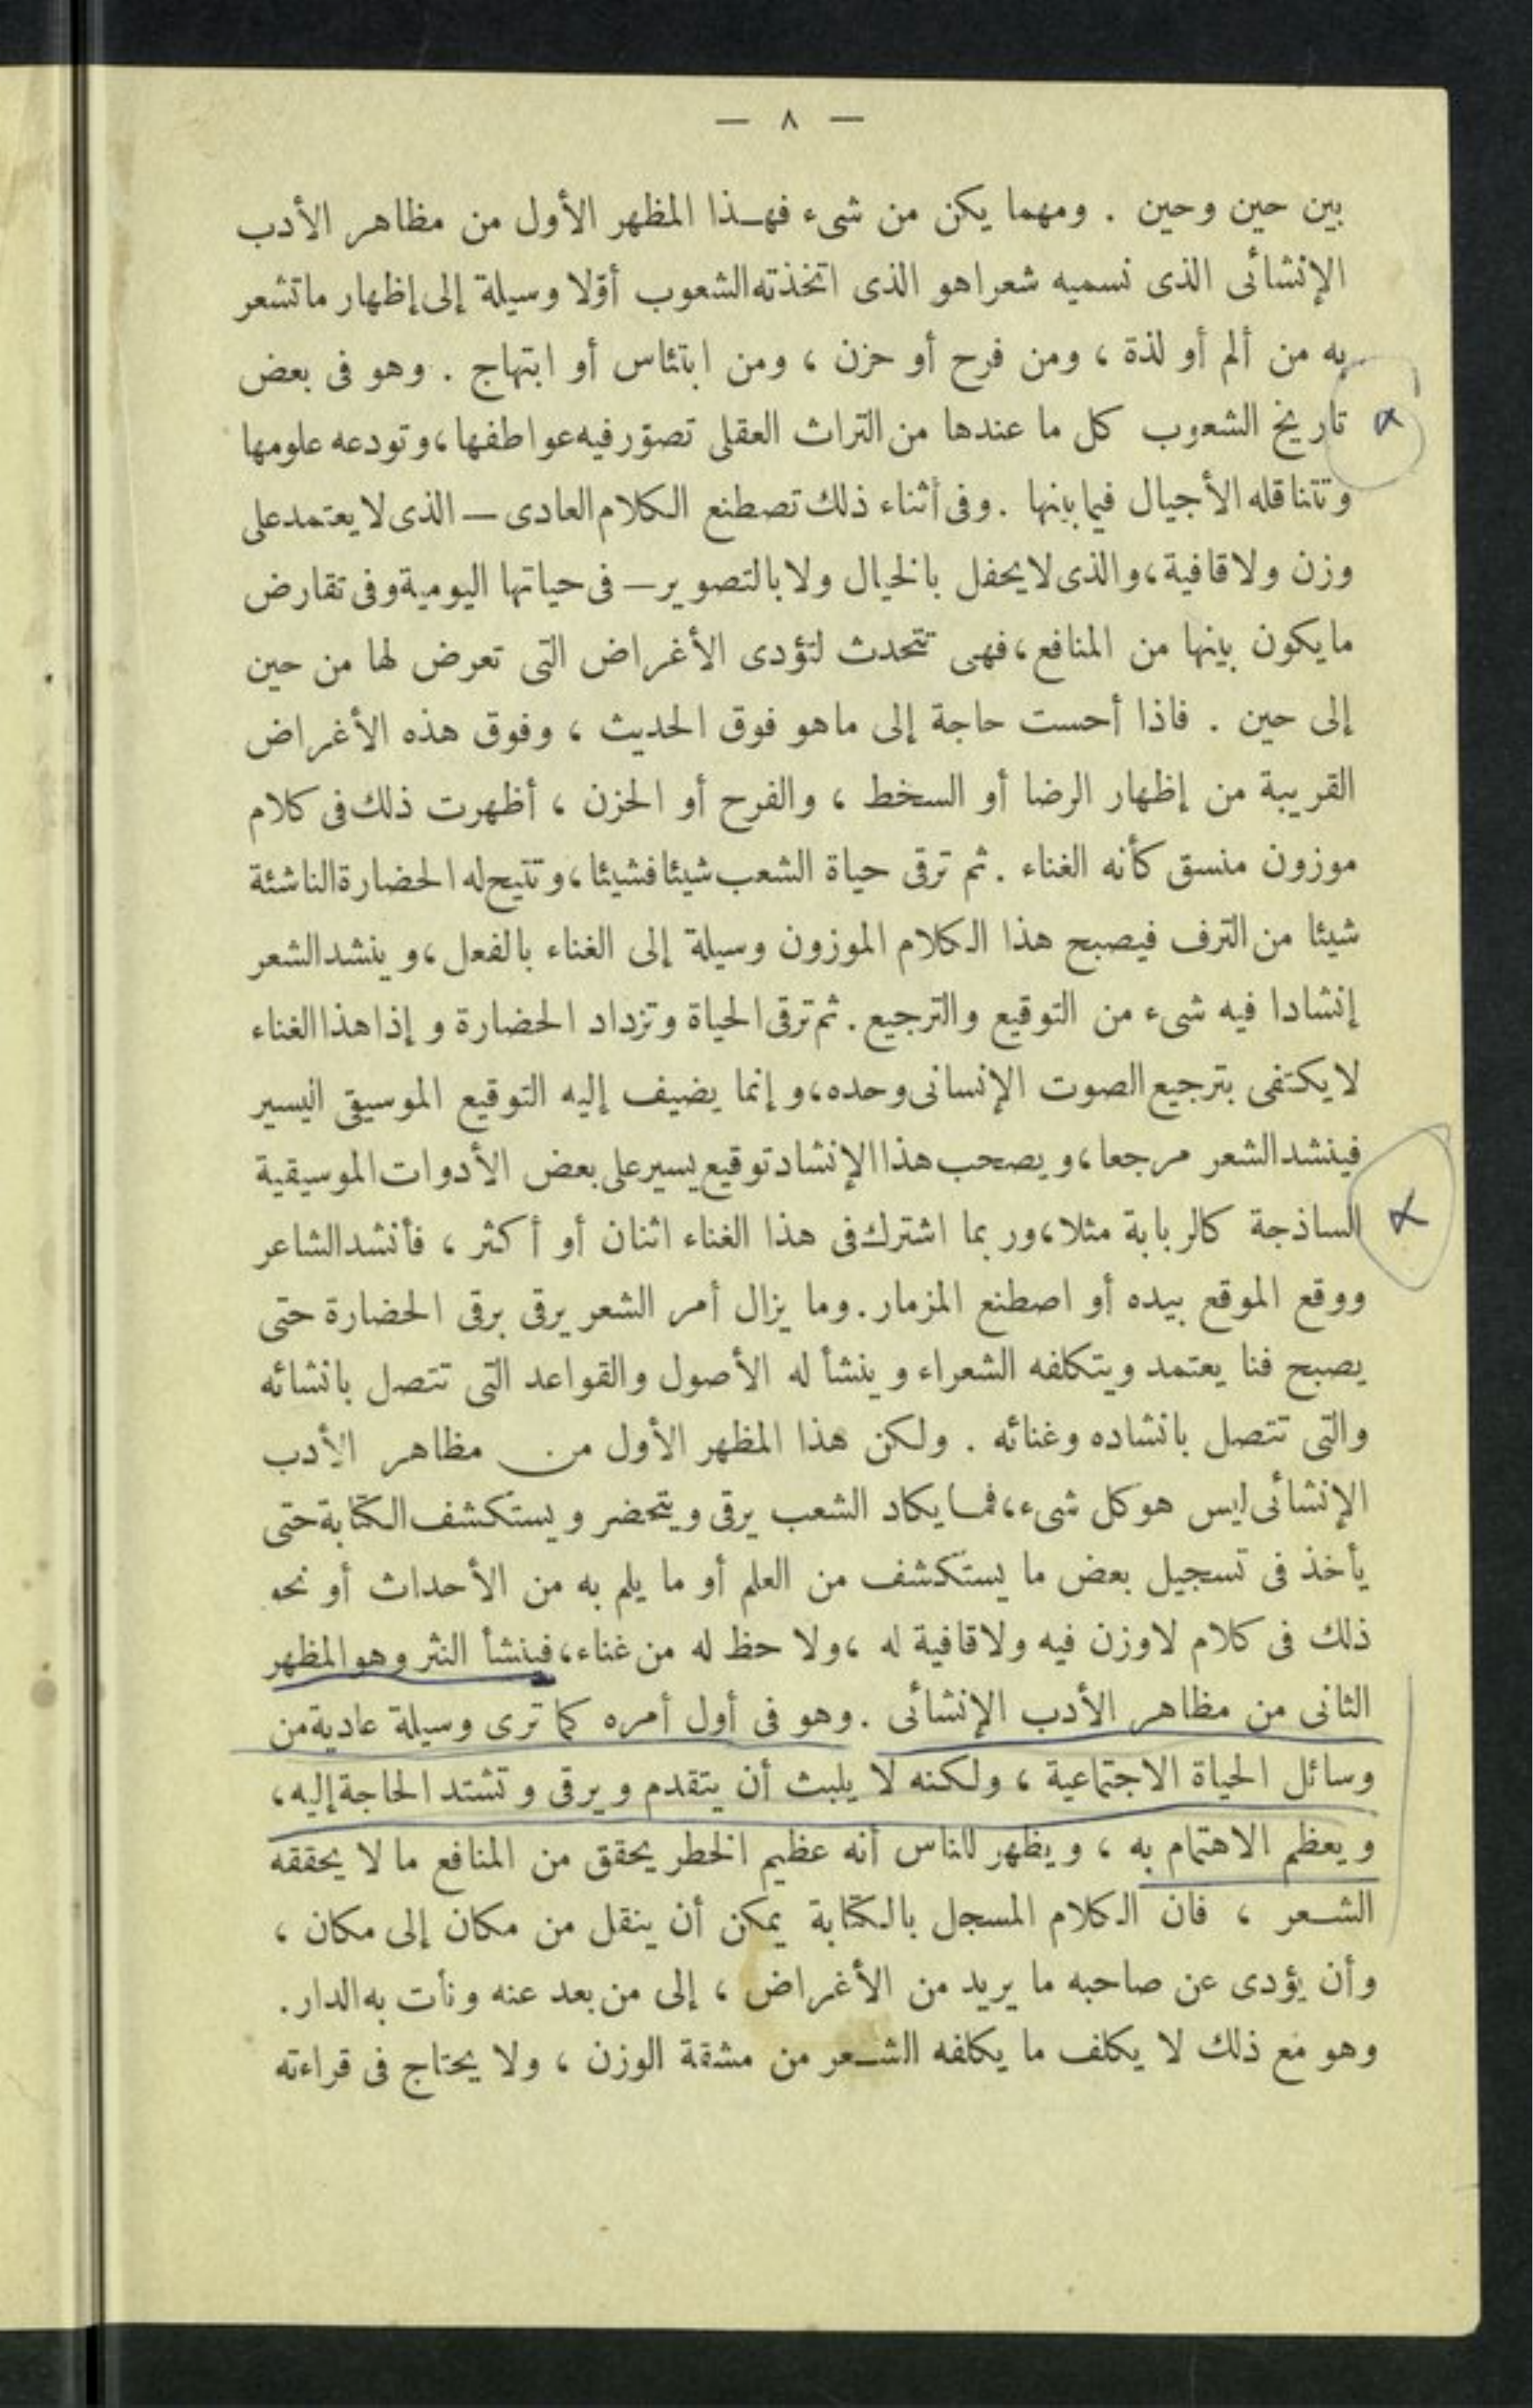 — ٨ —
بين حين وحين . ومهما يكن من شىء فهـذا المظهر الأول من مظاهر الأدب
الإنشائى الذى نسميه شعرا هو الذى اتخذته الشعوب أوّلا وسيلة إلى إظهار ما تشعر
به من ألم أو لذة ، ومن فرح أو حزن ، ومن ابتئاس أو ابتهاج . وهو فى بعض
تاريخ الشعوب كل ما عندها من التراث العقلى تصوّر فيه عواطفها ، وتودعه علومها
وتتناقله الأجيال فيما بينها . وفى أثناء ذلك تصطنع الكلام العادى — الذى لا يعتمد على
وزن ولا قافية ، والذى لا يحفل بالخيال ولا بالتصوير — فى حياتها اليومية وفى تقارض
ما يكون بينها من المنافع ، فهى تتحدث لتؤدى الأغراض التى تعرض لها من حين
إلى حين . فاذا أحست حاجة إلى ما هو فوق الحديث ، وفوق هذه الأغراض
القريبة من إظهار الرضا أو السخط ، والفرح أو الحزن ، أظهرت ذلك فى كلام
موزون منسق كأنه الغناء . ثم ترقى حياة الشعب شيئا فشيئا ، وتتيح له الحضارة الناشئة
شيئا من الترف فيصبح هذا الكلام الموزون وسيلة إلى الغناء بالفعل ، وينشد الشعر
إنشادا فيه شىء من التوقيع والترجيع . ثم ترقى الحياة وتزداد الحضارة وإذا هذا الغناء
لا يكتفى بترجيع الصوت الإنسانى وحده ، وإنما يضيف إليه التوقيع الموسيقى اليسير
فينشد الشعر مرجعا ، ويصحب هذا الإنشاد توقيع يسير على بعض الأدوات الموسيقية
الساذجة كالربابة مثلا ، وربما اشترك فى هذا الغناء اثنان أو أكثر ، فأنشد الشاعر
ووقع الموقع بيده أو اصطنع المزمار . وما يزال أمر الشعر يرقى برقى الحضارة حتى
يصبح فنا يعتمد ويتكلفه الشعراء وينشأ له الأصول والقواعد التى تتصل بانشائه
والتى تتصل بانشاده وغنائه . ولكن هذا المظهر الأول من مظاهر الأدب
الإنشائى ليس هو كل شىء ، فمـا يكاد الشعب يرقى ويتحضر ويستكشف الكتابة حتى
يأخذ فى تسجيل بعض ما يستكشف من العلم أو ما يلم به من الأحداث أو نحو
ذلك فى كلام لا وزن فيه ولا قافية له ، ولا حظ له من غناء ، فينشأ النثر وهو المظهر
الثانى من مظاهر الأدب الإنشائى . وهو فى أول أمره كما ترى وسيلة عادية من
وسائل الحياة الاجتماعية ، ولكنه لا يلبث أن يتقدم ويرقى وتشتد الحاجة إليه ،
ويعظم الاهتمام به ، ويظهر للناس أنه عظيم الخطر يحقق من المنافع ما لا يحققه
الشـعر ، فان الكلام المسجل بالكتابة يمكن أن ينقل من مكان إلى مكان ،
وأن يؤدى عن صاحبه ما يريد من الأغراض ، إلى من بعد عنه ونأت به الدار .
وهو مع ذلك لا يكلف ما يكلفه الشـعر من مشقة الوزن ، ولا يحتاج فى قراءته